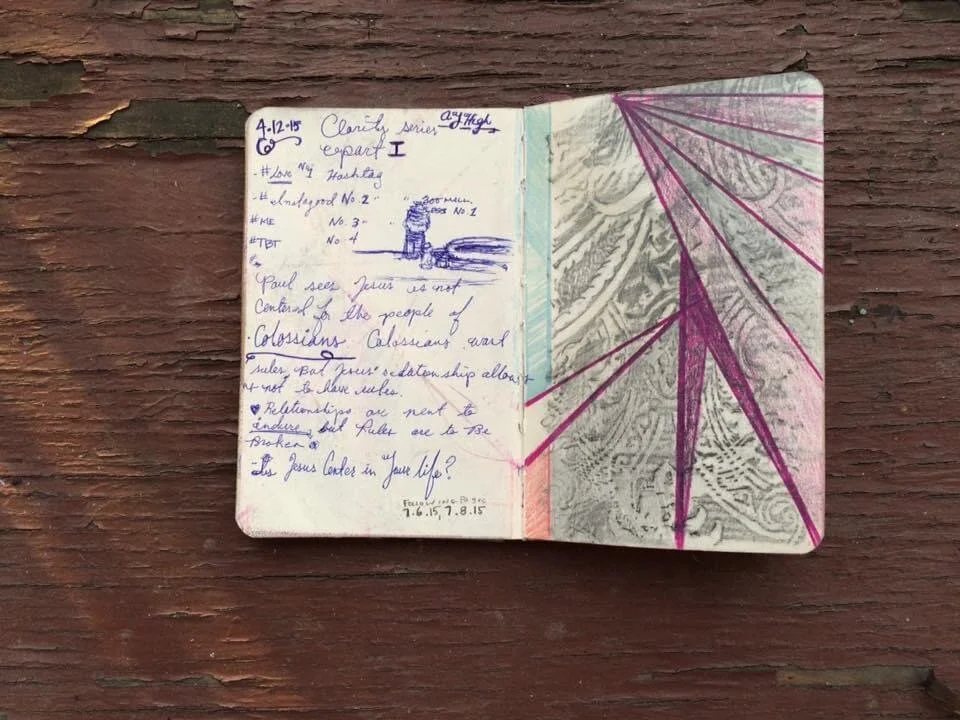 4.12.15 Clarity series AY High
part I
- #Love No 1 Hashtag
- # Instagood No. 2 " " 300 mill.
less No. 1
#ME No. 3 "
#TBT No. 4
Paul sees Jesus is not
centered for the people of
Colossians. Colossians want
rules, But Jesus' relationship allows
not to have rules.
♥ Relationships are ment to
endure, but Rules are to Be
Broken.
Is Jesus Center in Your life?
Following Page
7.6.15, 7.8.15